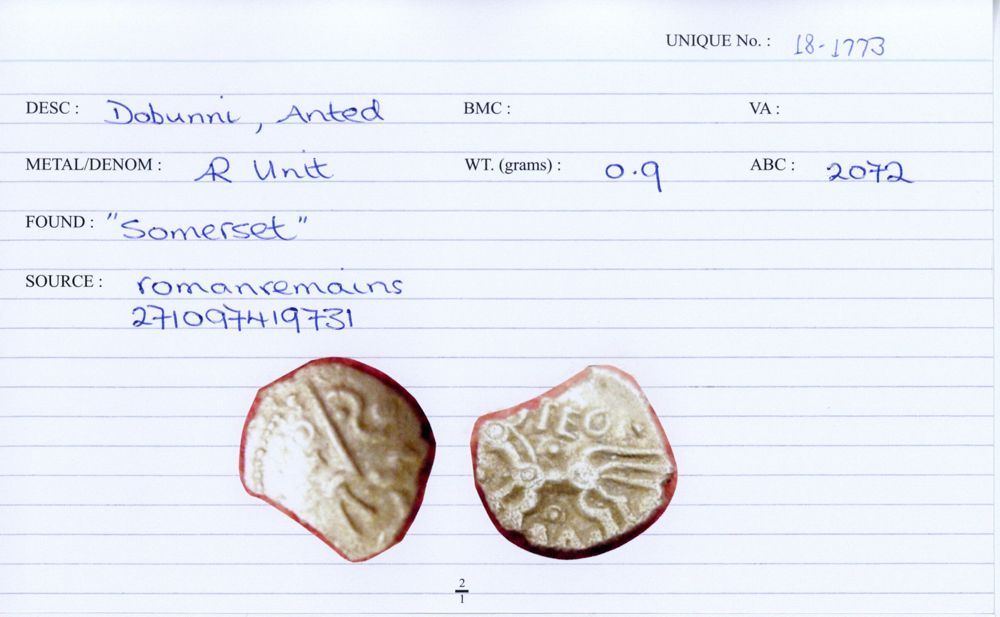 UNIQUE No. : 18-1773
DESC : Dobunni, Anted BMC : VA :
METAL/DENOM : AR Unit WT. (grams) : 0.9 ABC : 2072
FOUND : "Somerset"
SOURCE : romanremains
271097419731
2
1